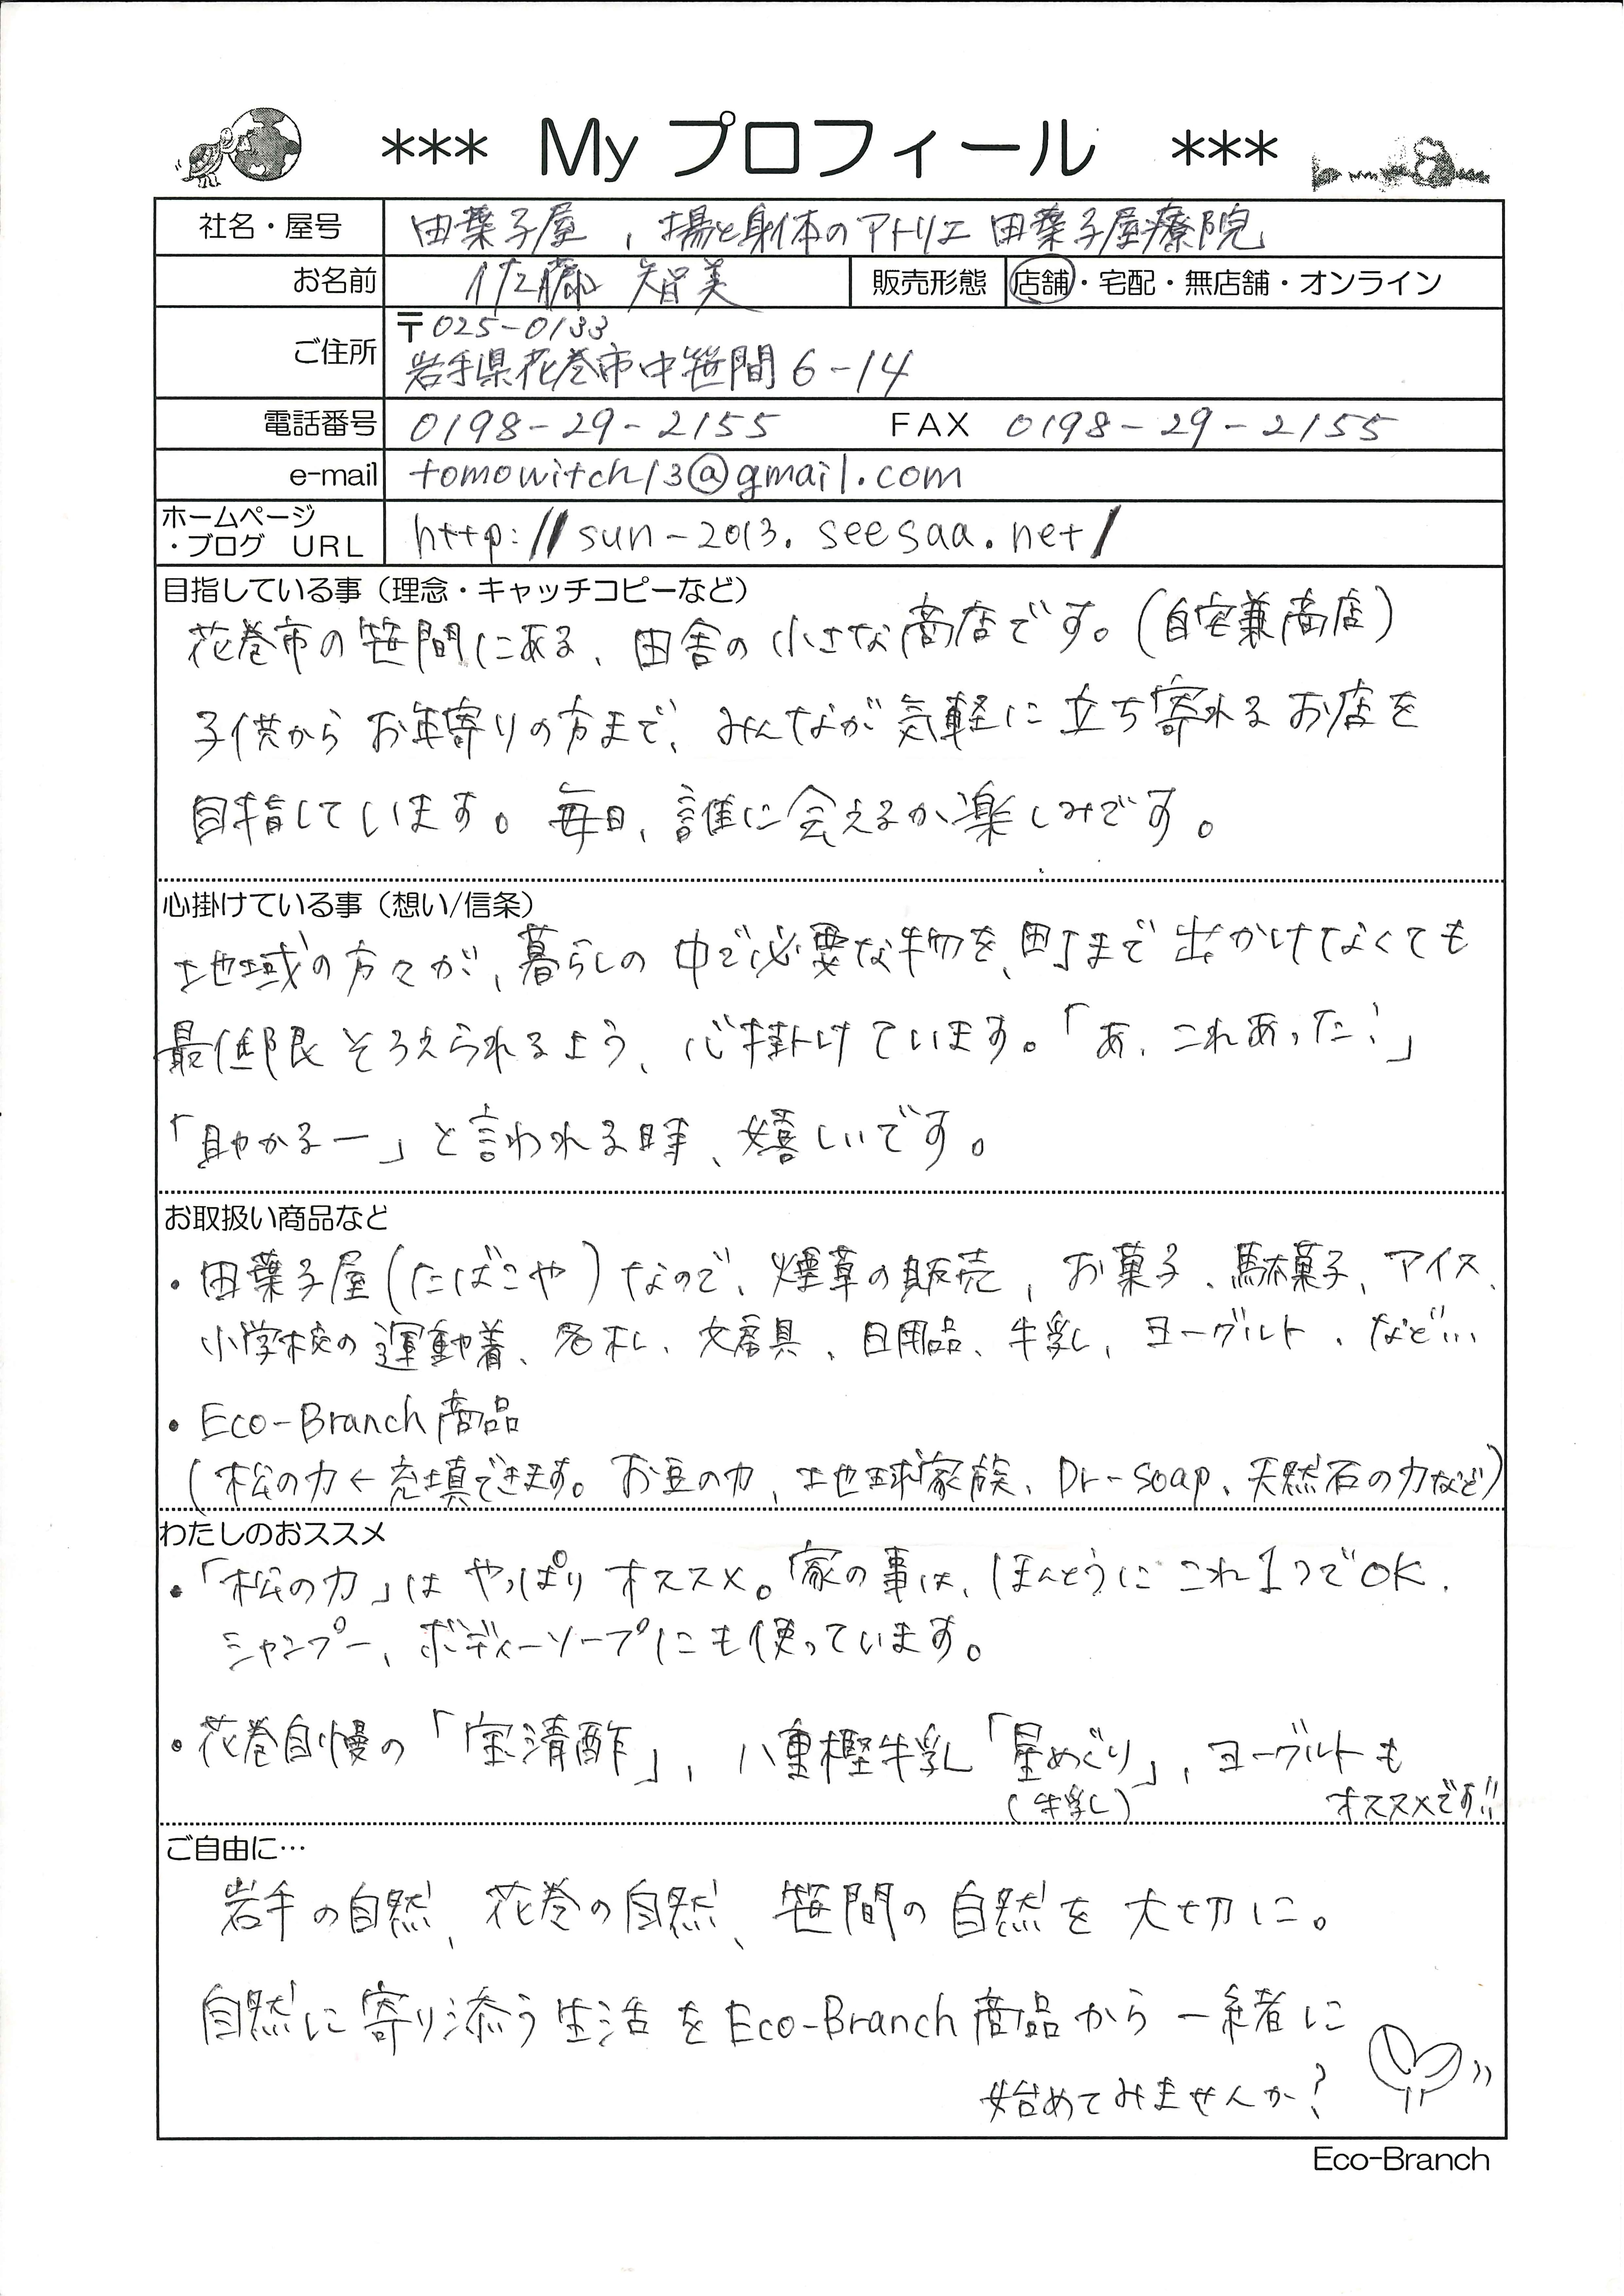 *** My プロフィール ***
社名・屋号 田葉子屋、揚と身体のアトリエ 田葉子屋療院
お名前 佐藤 智美 販売形態 店舗・宅配・無店舗・オンライン
ご住所 〒025-0133
岩手県花巻市中笹間6-14
電話番号 0198-29-2155 FAX 0198-29-2155
e-mail tomowitch13@gmail.com
ホームページ
・ブログ URL http://sun-2013.seesaa.net/
目指している事(理念・キャッチコピーなど)
花巻市の笹間にある、田舎の小さな商店です。(自宅兼商店)
子供からお年寄りの方まで、みんなが気軽に立ち寄れるお店を
目指しています。毎日、誰に会えるか楽しみです。
心掛けている事(想い/信条)
地域の方々が、暮らしの中で必要な物を、町まで出かけてなくても
最低限そろえられるよう、心掛けています。「あ、これあった!」
「助かるー」と言われる時、嬉しいです。
お取扱い商品など
・田葉子屋(たばこや)なので、煙草の販売、お菓子、駄菓子、アイス、
小学校の運動着、名札、文房具、日用品、牛乳、ヨーグルト、など…
・Eco-Branch商品
(松の力←充填できます。お豆の力、地球家族、Dr-soap、天然石の力など)
わたしのおススメ
・「松の力」はやっぱりオススメ。家の事は、ほんとうにこれ1つでOK.
シャンプー、ボディーソープにも使っています。
・花巻自慢の「宝清酢」、八重樫牛乳「星めぐり」、ヨーグルトも
(牛乳) オススメです!!
ご自由に…
岩手の自然、花巻の自然、笹間の自然を大切に。
自然に寄り添う生活をEco-Branch商品から一緒に
始めてみませんか?
Eco-Branch